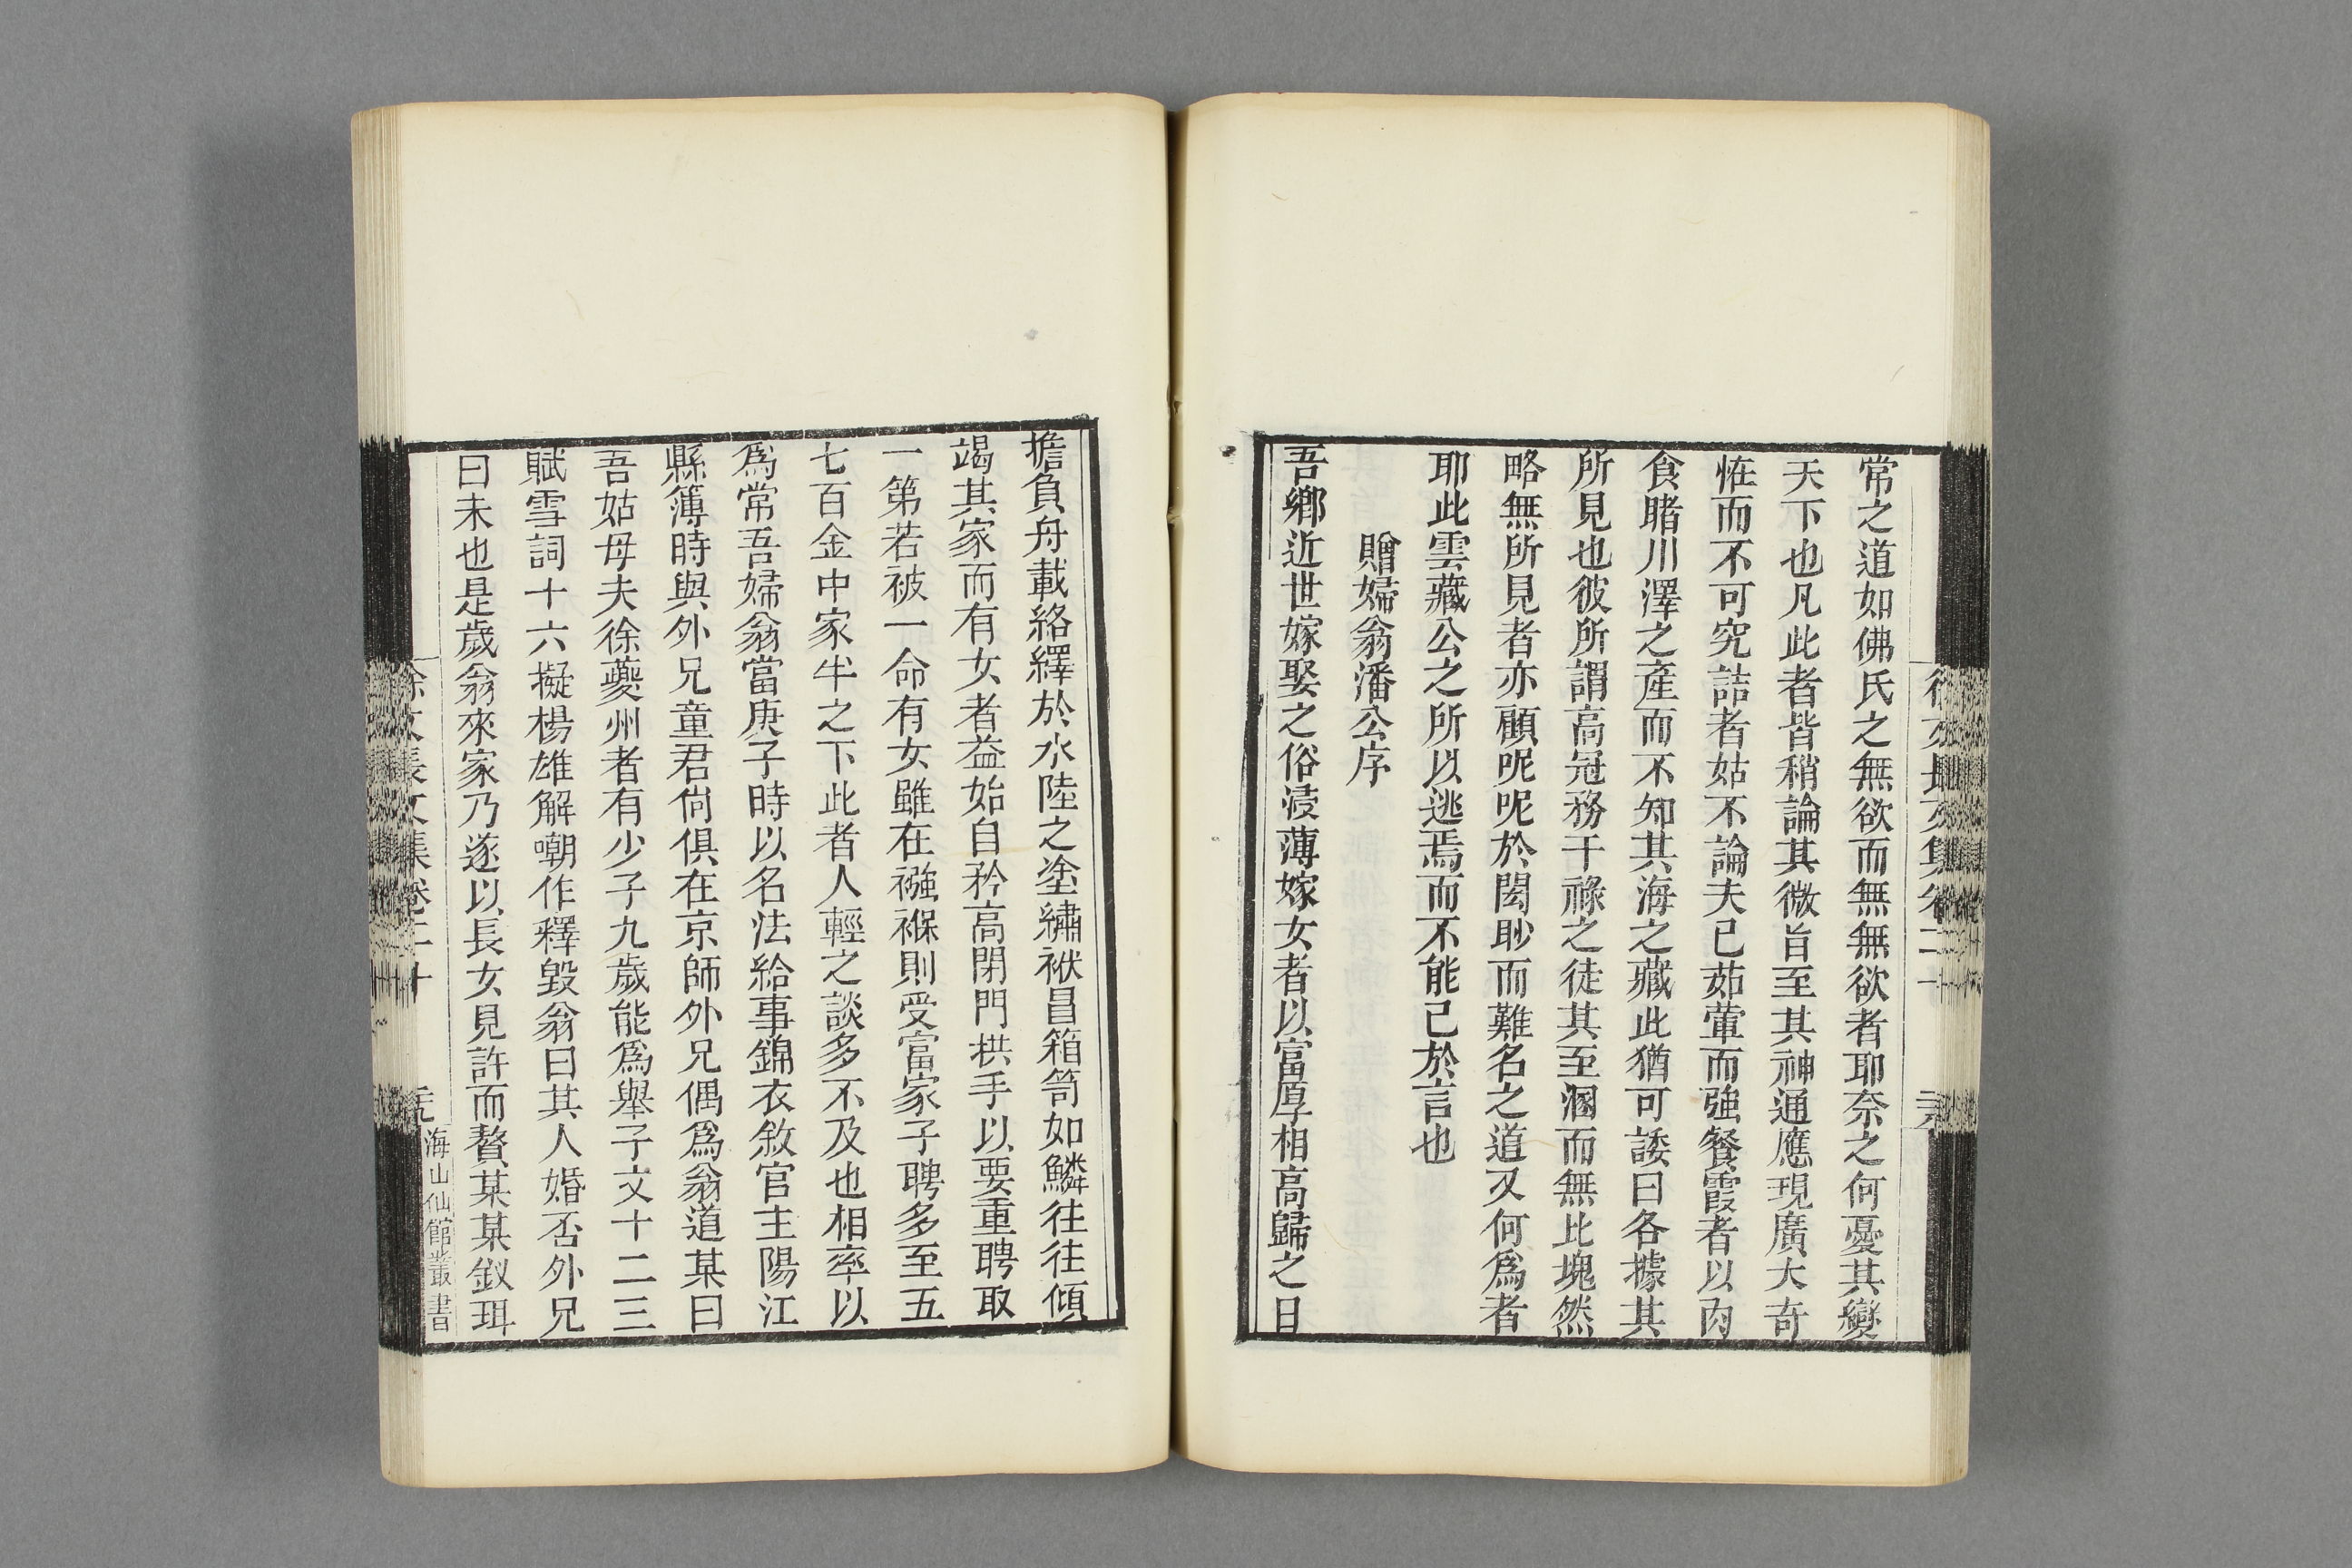 常之道如佛氏之無欲而無無欲者耶奈之何憂其變
天下也凡此者皆稍論其微旨至其神通應現廣大奇
恠而不可究詰者姑不論夫已茹葷而強餐霞者以肉
食睹川澤之產而不知其海之藏此猶可諉曰各據其
所見也彼所謂高冠務干祿之徒其至溷而無比塊然
略無所見者亦顧呢呢於閎眇而難名之道又何爲者
耶此雲藏公之所以逃焉而不能已於言也
贈婦翁潘公序
吾鄉近世嫁娶之俗浸薄嫁女者以富厚相高歸之日
擔負舟載絡繹於水陸之塗繡袱冒箱笥如鱗往往傾
竭其家而有女者益始自矜高閉門拱手以要重聘取
一第若被一命有女雖在襁褓則受富家子聘多至五
七百金中家半之下此者人輕之談多不及也相率以
爲常吾婦翁當庚子時以名法給事錦衣敘官主陽江
縣簿時與外兄童君尙俱在京師外兄偶爲翁道某曰
吾姑母夫徐夔州者有少子九歲能爲舉子文十二三
賦雪詞十六擬楊雄解嘲作釋毀翁曰其人婚否外兄
曰未也是歲翁來家乃遂以長女見許而贅某某釵珥
徐文長文集卷二十
海山仙館叢書